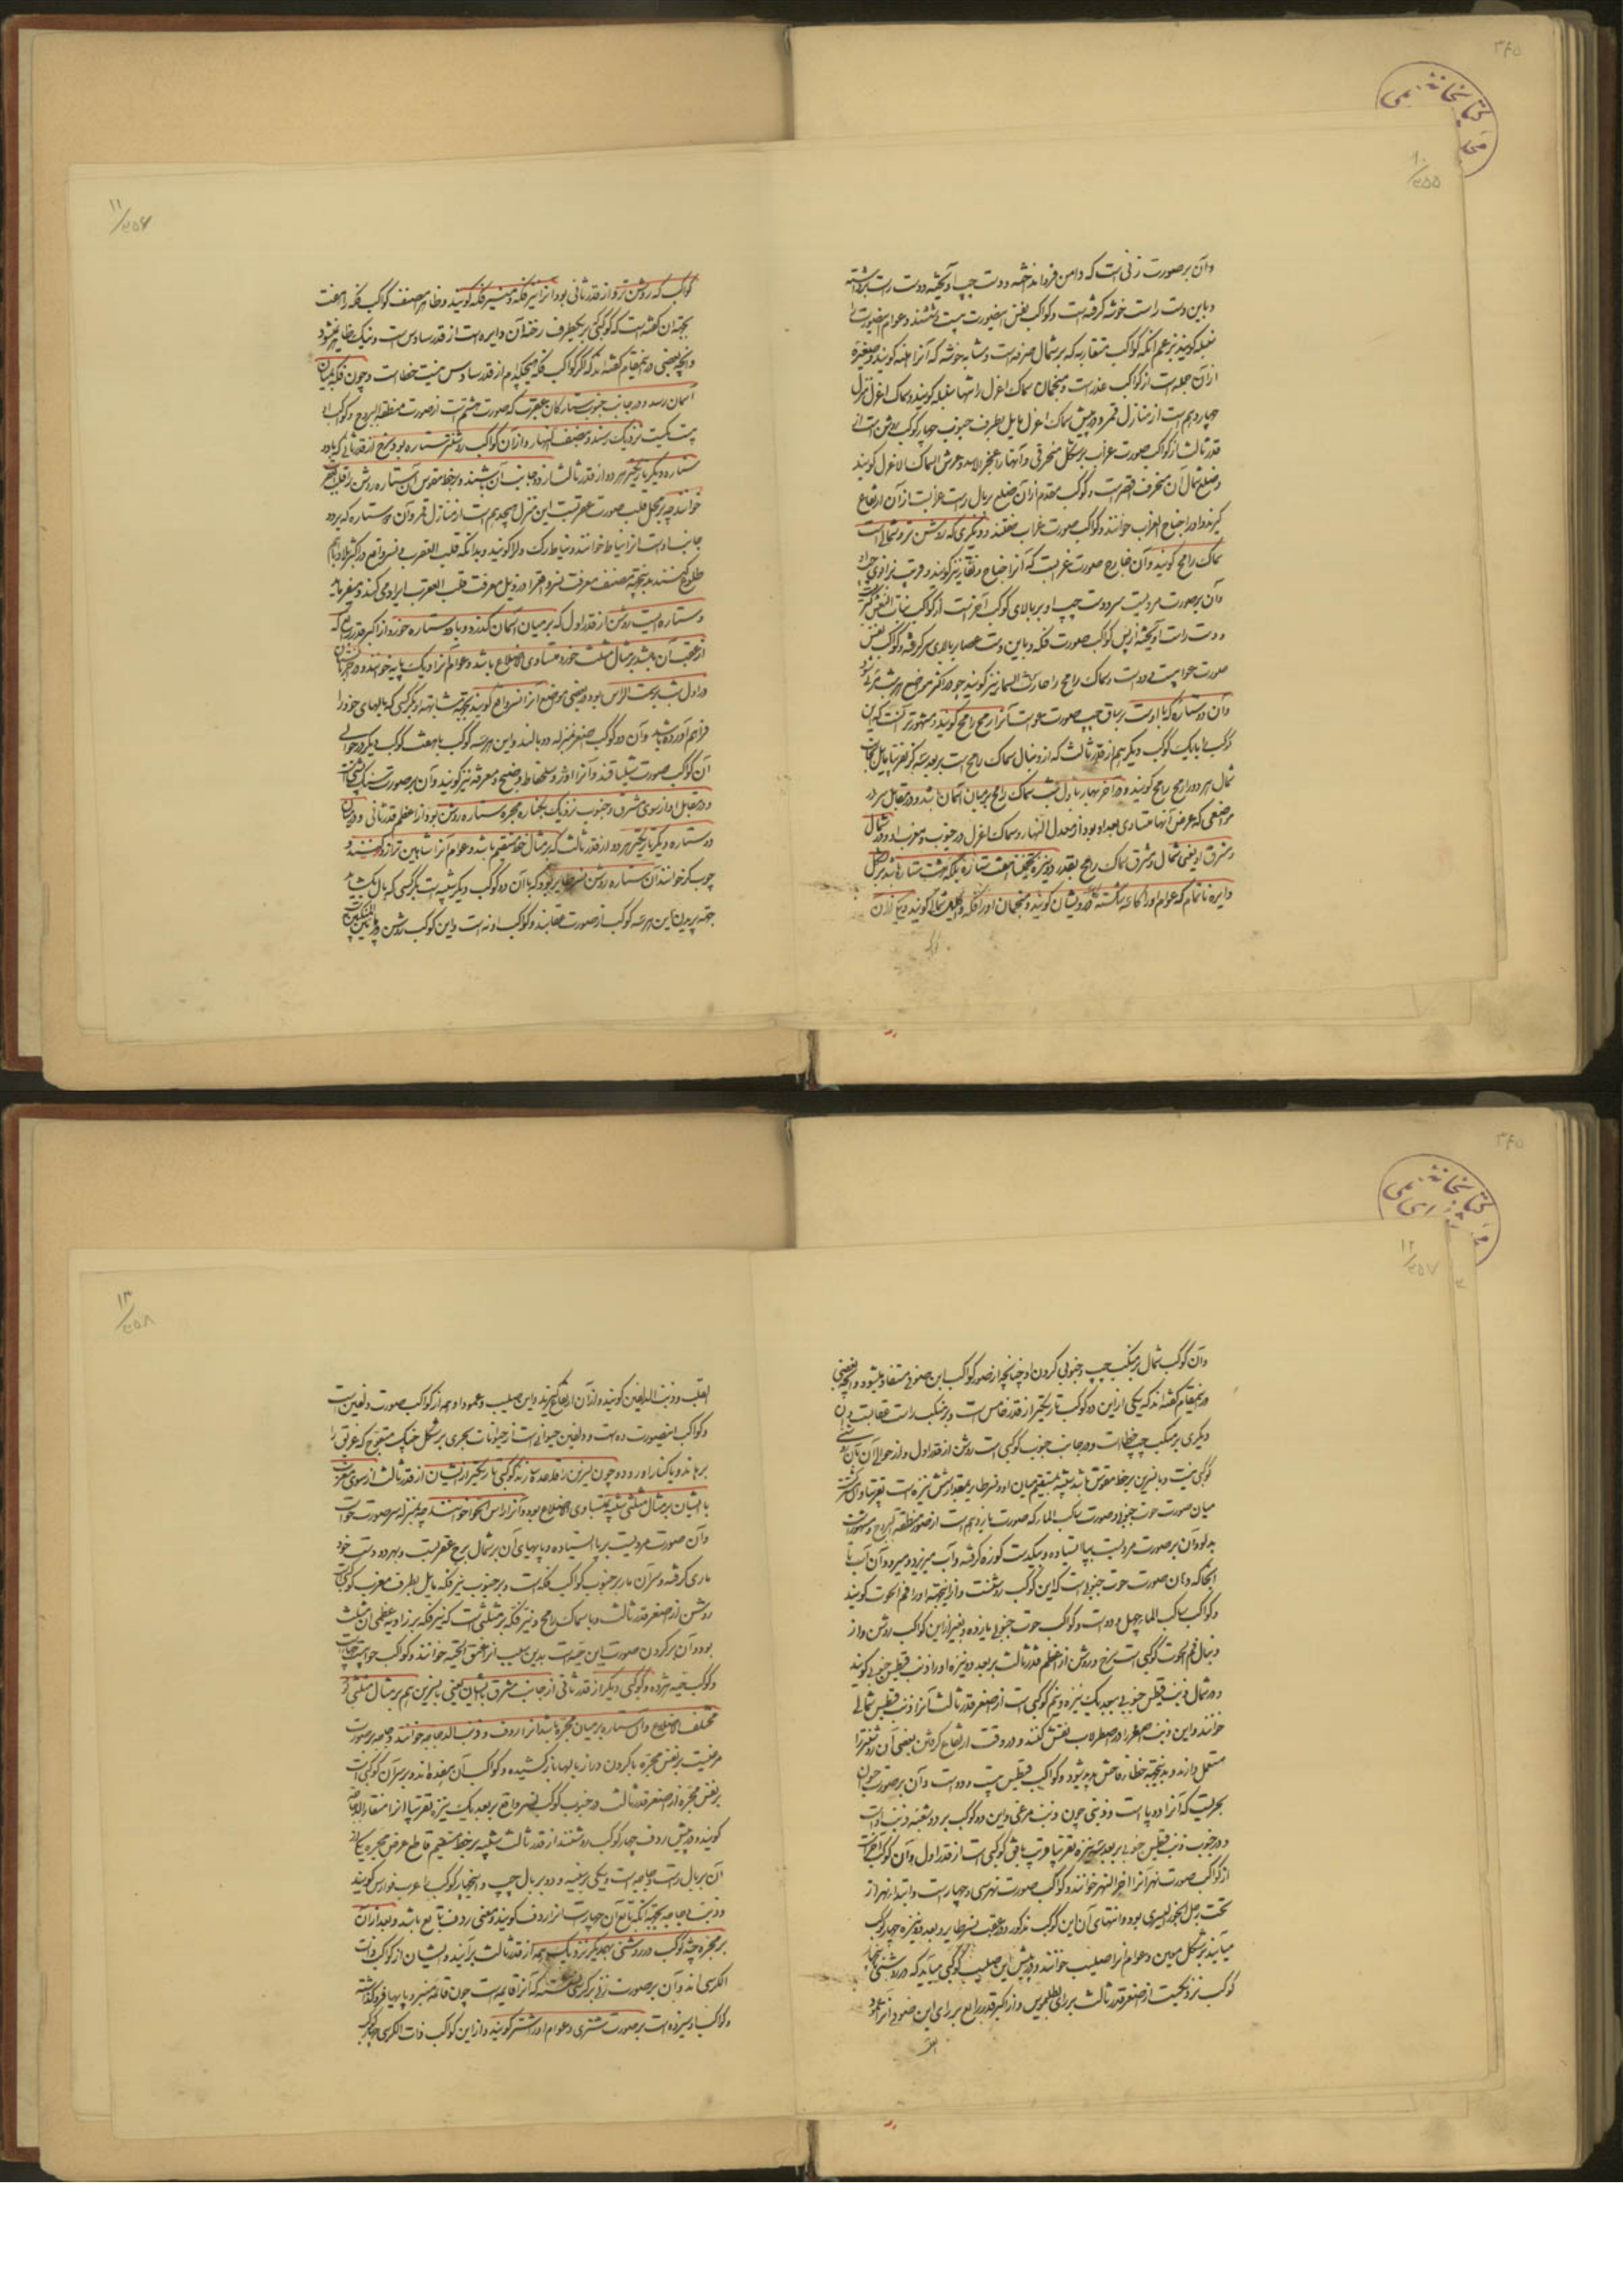 ۳۴۵
کتابخانه
۱۰
۲۵۵
وآن بر صورت زنی است که دامن فروانداخته و دست چپ آویخته و دست راست برداشته
و باین دست راست خوشه گرفته است و کواکب نفس این صورت بیست و ششند و عوام این صورت را
سنبله گویند بزعم آنکه کواکب متقاربه که بر شمال صرفه است مشابه خوشه که آنرا هلبه گویند و صغیره
از آن جمله است از کواکب عذراست و منجمان سماک اعزل را تنها سنبله گویند و سماک اعزل منزل
چهاردهم است از منازل قمر و در پیش سماک اعزل مایل بطرف جنوب چهار کوکب روشن است از
قدر ثالث از کواکب صورت غراب بر شکل منحرفی و آنها را عجز الاسد و عرش السماک الاعزل گویند
و ضلع شمال آن منحرف اقصر است و کوکب مقدم از آن ضلع بر بال راست غرابست از آن ارتفاع
گیرند و او را جناح الغراب خوانند و کواکب صورت غراب هفتند و دیگری که روشن تر و شمالی است
سماک رامح گویند و آن خارج صورت
وآن بر صورت مردیست سر و دست چپ او بر بالای کوکب آخر است از کواکب بنات النعش
و دست راست آویخته از پس کواکب صورت فکه و باین دست عصا بر بالای سر گرفته و کواکب نفس
صورت عوا بیست و دو است و سماک رامح را حارث السما نیز گویند
وآن دو ستاره که با اوست بر ساق چپ صورت عواست آنرا رمح رامح گویند و مشهور تر آنست که این
کوکب با یک کوکب دیگر هم از قدر ثالث که از دنبال سماک رامح است
شمال هر دو را رمح رامح گویند و در آخر بهار باول شب سماک رامح بر میان آسمان باشد و در مقابل سر در
مواضعی که عرض آنها مساوی بعد او بود از معدل النهار و سماک اعزل در جنوب و مغرب او و در شمال
و مشرق او یعنی شمال و مشرق سماک رامح بقدر دو نیزه تخمینا هفت ستاره بلکه هشت ستاره باشد بر شکل
دایره ناتمام که عوام او را کاسه شکسته درویشان گویند و منجمان او را فکه و اکلیل شمالی گویند و یکی از آن
کواکب
۱۱
۲۵۶
کواکب که روشن تر و از قدر ثانی بود آنرا نیر فکه و منیر فکه گویند و ظاهر مصنف کواکب فکه را هفت
بجهت آن گفته است که کوکبی که بر یکطرف رخنه آن دایره است از قدر سادس است و نیک ظاهر نمیشود
و آنچه بعضی در نمقام گفته اند که اکثر کواکب فکه هیچکدام از قدر سادس نیست خطاست و چون فکه بمیان
آسمان رسد و در جانب جنوب ستارکان عقربست که صورت هشتم است از صورت منطقه البروج و کواکب او
بیست و یکست نزدیک رسند و نصف النهار و از آن کواکب روشنتر ستاره بود سرخ از قدر ثانی که با دو
ستاره دیگر باریکتر هر دو از قدر ثالث از دو جانب آن باشند و بر خط مقوس آن ستاره روشن را قلب العقرب
خوانند چه بر محل قلب صورت عقربست این منزل هجدهم است از منازل قمر و آن دو ستاره که بر دو
جانب اوست آنرا نیاط خوانند
طلوع کنند بدینجهت مصنف معرفت نسر واقع را در ذیل معرفت قلب العقرب ایراد می کند و میفرماید
و ستاره ایست روشن از قدر اول که بر میان آسمان گذرد و با دو ستاره خورد از اکبر قدر رابع که
از عقب آن باشد بر مثال مثلث خورد متساوی الاضلاع باشد و عوام آنرا دیک پایه خوانند
در اول شب بر سمت الراس بود و بعضی مواضع آنرا نسر واقع گویند بجهت مشابهت او بکرکسی که بالهای خود را
فراهم آورده باشد و آن دو کوکب اصغر بمنزله دو بالند و این هر سه کوکب با هفت کوکب دیگر در حوالی
آن کواکب صورت شلیاقند
و در مقابل او از سوی مشرق و جنوب نزدیک بکناره مجره ستاره روشن بود از اعظم قدر ثانی و در میان
دو ستاره دیگر باریکتر هر دو از قدر ثالث که بر مثال خط مستقیم باشد و عوام آنرا شاهین ترازو گویند و
چوب گز خوانند آن ستاره روشن نسر طایر بود که با آن دو کوکب دیگر شبیه است بکرکسی که بال بگشاید
جهت پریدن و این هر سه کوکب از صورت عقابند و کواکب او نه است و این کوکب روشن
۳۴۵
کتابخانه
۱۲
۲۵۷
وآن کوکب شمال بر منکب چپ و جنوبی گردن او چنانچه از صور کواکب ابن صوفی مستفاد میشود و آنچه بعضی
در نمقام گفته اند که یکی از این دو کوکب باریکتر از قدر خامس است و بر منکب راست عقابست و آن
دیگری بر منکب چپ خطاست و در جانب جنوب کوکبی است روشن از قدر اول و از حوالی آن
کوکبی نیست و با نسرین بر خط مقوس باشد شبیه بمستقیم میان او و نسر طایر بمقدار شش نیزه است تقریبا
میان صورت حوت جنوبی و صورت ساکب الما که صورت یازدهم است از صور منطقه البروج و مشهور است
بدلو وآن بر صورت مردیست بپا ایستاده و بیکدست کوزه گرفته و آب میریزد و میرود آن آب تا
آنجا که دهان صورت حوت جنوبی است که این کوکب روشنست و از اینجهت او را فم الحوت گویند
و کواکب ساکب الما چهل و دو است و کواکب حوت جنوبی یازده و بغیر از این کواکب روشن و از
دنبال فم الحوت کوکبی است سرخ و روشن از اعظم قدر ثالث بر بعد دو نیزه او را ذنب قیطس جنوبی گویند
و در شمال ذنب قیطس جنوبی ببعد یک نیزه و نیم کوکبی است از اصغر قدر ثالث آنرا ذنب قیطس شمالی
خوانند و این ذنب اصغر را در اصطرلاب نقش کنند و در وقت ارتفاع گرفتن بعضی آن روشنتر را
مستعمل دارند و بدینجهت خطاء فاحش پدید شود و کواکب قیطس بیست و دو است وآن بر صورت حیوان
بحریست که آنرا دو پا است و ذنبی چون ذنب مرغی و این دو کوکب بر دو شعبه ذنب اوست
و در جنوب ذنب قیطس جنوبی بر بعد سه نیزه تقریبا قریب بافق کوکبی است از قدر اول وآن کوکب آخر است
از کواکب صورت نهر آنرا آخر النهر خوانند و کواکب صورت نهر سی و چهار است و ابتدای نهر از
تحت رجل الجوزا الیسری بود و انتهای آن این کوکب مذکور و در عقب نسر طایر و بعد دو نیزه چهار کوکب
میآیند بر شکل معین و عوام آنرا صلیب خوانند و در پیش این صلیب کوکبی میآید که در روشنی بآنچهار
کوکب نزدیکست از اصغر قدر ثالث بر رای بطلمیوس و از اکبر قدر رابع بر رای ابن صوفی آنرا عمود
۱۳
۲۵۸
الصلیب و ذنب الدلفین گویند و از آن ارتفاع گیرند و این صلیب و عمود او همه از کواکب صورت دلفین است
و کواکب اینصورت ده است و دلفین حیوانی است از حیوانات بحری بر شکل خیک منفوخ که غریق را
برهاند و با کنار آورد و چون نسرین را قاعده سازند کوکبی باریکتر از نشان از قدر ثالث از سوی مغرب
با ایشان بر مثال مثلثی شبیه بمتساوی الاضلاع بود و آنرا راس الحوا خوانند چه بمنزله سر صورت حواست
وآن صورت مردیست بر پا ایستاده و پایهای آن بر شمال برج عقربست و بهر دو دست خود
ماری گرفته و سر آن مار بر جنوب کواکب فکه است و بر جنوب نیر فکه مایل بطرف مغرب کوکبی است
روشن از اصغر قدر ثالث و با سماک رامح و نیر فکه بر مثلثی است که نیر فکه بر زاویه عظمی آن مثلث
بود وآن بر گردن صورت این حیه است بدین سبب آنرا عنق الحیه خوانند و کواکب حوا بیست و چهار است
و کواکب حیه هژده و کوکبی دیگر از قدر ثانی از جانب مشرق با ایشان یعنی با نسرین هم بر مثال مثلثی
مختلف الاضلاع وآن ستاره بر میان مجره باشد آنرا ردف و ذنب الدجاجه خوانند و دجاجه بر صورت
مرغیست بر نفس مجره با گردن دراز بالها باز کشیده و کواکب آن هفده اند و بر سر آن کوکبی است
بر نفس مجره از اصغر قدر ثالث در جنوب کوکب نسر واقع بر بعد یک نیزه تقریبا آنرا منقار الدجاجه
گویند و در پیش ردف چهار کوکب روشنند از قدر ثالث شبیه بر خط مستقیم قاطع عرض مجره یکی از
آن بر بال راست دجاجه است و یکی بر سینه و دو بر بال چپ و اینچهار کوکب را عرب فوارس گویند
و ذنب دجاجه بجهت آنکه تابع آن چهارست آنرا ردف گویند و معنی ردف تابع باشد و بعد از آن
بر مجره چند کوکب در روشنی بهمدیگر نزدیک همه از قدر ثالث برآیند و ایشان از کواکب ذات
الکرسی اند وآن بر صورت زنی بر کرسی نشسته که آنرا قایمه است چون قائمه منبر و پایها فروگذاشته
و کواکب او سیزده است بر صورت شتری و عوام او را شتر گویند و از این کواکب ذات الکرسی چهار کوکب